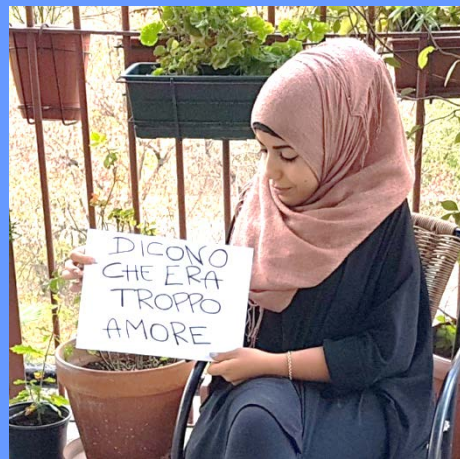 DICONO
CHE ERA
TROPPO
AMORE